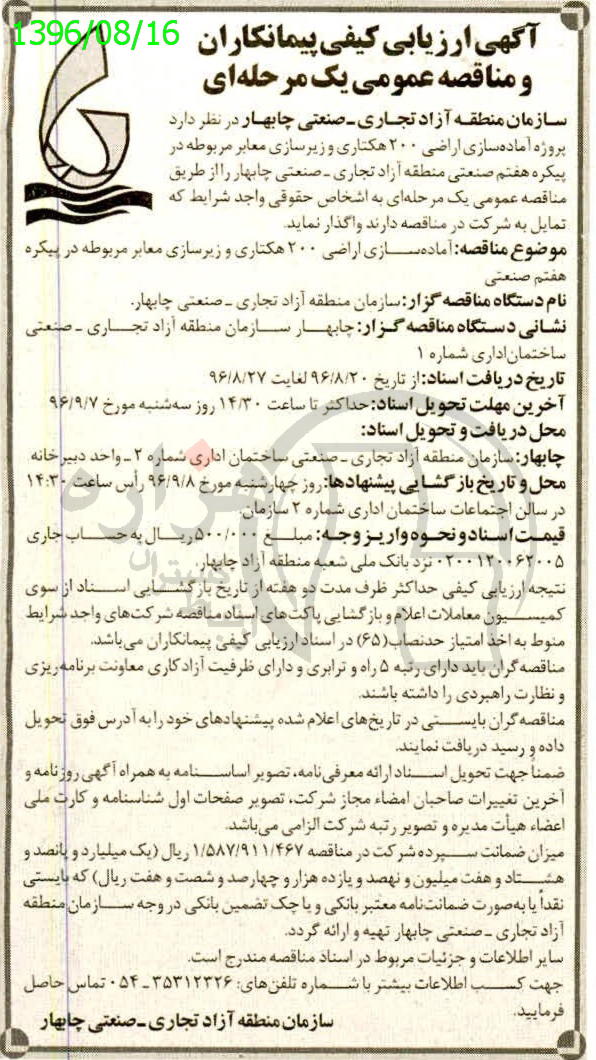 1396/08/16
آگهی ارزیابی کیفی پیمانکاران
و مناقصه عمومی یک مرحله‌ای
سازمان منطقه آزاد تجاری ـ صنعتی چابهار در نظر دارد
پروژه آماده‌سازی اراضی ۲۰۰ هکتاری و زیرسازی معابر مربوطه در
پیکره هفتم صنعتی منطقه آزاد تجاری ـ صنعتی چابهار را از طریق
مناقصه عمومی یک مرحله‌ای به اشخاص حقوقی واجد شرایط که
تمایل به شرکت در مناقصه دارند واگذار نماید.
موضوع مناقصه: آماده‌سازی اراضی ۲۰۰ هکتاری و زیرسازی معابر مربوطه در پیکره
هفتم صنعتی
نام دستگاه مناقصه گزار: سازمان منطقه آزاد تجاری ـ صنعتی چابهار.
نشانی دستگاه مناقصه گزار: چابهار سازمان منطقه آزاد تجاری ـ صنعتی
ساختمان اداری شماره ۱
تاریخ دریافت اسناد: از تاریخ ۹۶/۸/۲۰ لغایت ۹۶/۸/۲۷
آخرین مهلت تحویل اسناد: حداکثر تا ساعت ۱۴/۳۰ روز سه‌شنبه مورخ ۹۶/۹/۷
محل دریافت و تحویل اسناد:
چابهار: سازمان منطقه آزاد تجاری ـ صنعتی ساختمان اداری شماره ۲ ـ واحد دبیرخانه
محل و تاریخ بازگشایی پیشنهادها: روز چهارشنبه مورخ ۹۶/۹/۸ رأس ساعت ۱۴:۳۰
در سالن اجتماعات ساختمان اداری شماره ۲ سازمان.
قیمت اسناد و نحوه واریز وجه: مبلغ ۵۰۰/۰۰۰ ریال به حساب جاری
۰۲۰۰۱۲۰۰۶۲۰۰۵ نزد بانک ملی شعبه منطقه آزاد چابهار.
نتیجه ارزیابی کیفی حداکثر ظرف مدت دو هفته از تاریخ بازگشایی اسناد از سوی
کمیسیون معاملات اعلام و بازگشایی پاکت‌های اسناد مناقصه شرکت‌های واجد شرایط
منوط به اخذ امتیاز حدنصاب (۶۵) در اسناد ارزیابی کیفی پیمانکاران می‌باشد.
مناقصه‌گران باید دارای رتبه ۵ راه و ترابری و دارای ظرفیت آزاد کاری معاونت برنامه‌ریزی
و نظارت راهبردی را داشته باشند.
مناقصه‌گران بایستی در تاریخ‌های اعلام شده پیشنهادهای خود را به آدرس فوق تحویل
داده و رسید دریافت نمایند.
ضمناً جهت تحویل اسناد ارائه معرفی‌نامه، تصویر اساسنامه به همراه آگهی روزنامه و
آخرین تغییرات صاحبان امضاء مجاز شرکت، تصویر صفحات اول شناسنامه و کارت ملی
اعضاء هیأت مدیره و تصویر رتبه شرکت الزامی می‌باشد.
میزان ضمانت سپرده شرکت در مناقصه ۱/۵۸۷/۹۱۱/۴۶۷ ریال (یک میلیارد و پانصد و
هشتاد و هفت میلیون و نهصد و یازده هزار و چهارصد و شصت و هفت ریال) که بایستی
نقداً یا به‌صورت ضمانت‌نامه معتبر بانکی و یا چک تضمین بانکی در وجه سازمان منطقه
آزاد تجاری ـ صنعتی چابهار تهیه و ارائه گردد.
سایر اطلاعات و جزئیات مربوط در اسناد مناقصه مندرج است.
جهت کسب اطلاعات بیشتر با شماره تلفن‌های: ۳۵۳۱۲۳۲۶ ـ ۰۵۴ تماس حاصل
فرمایید.
سازمان منطقه آزاد تجاری ـ صنعتی چابهار